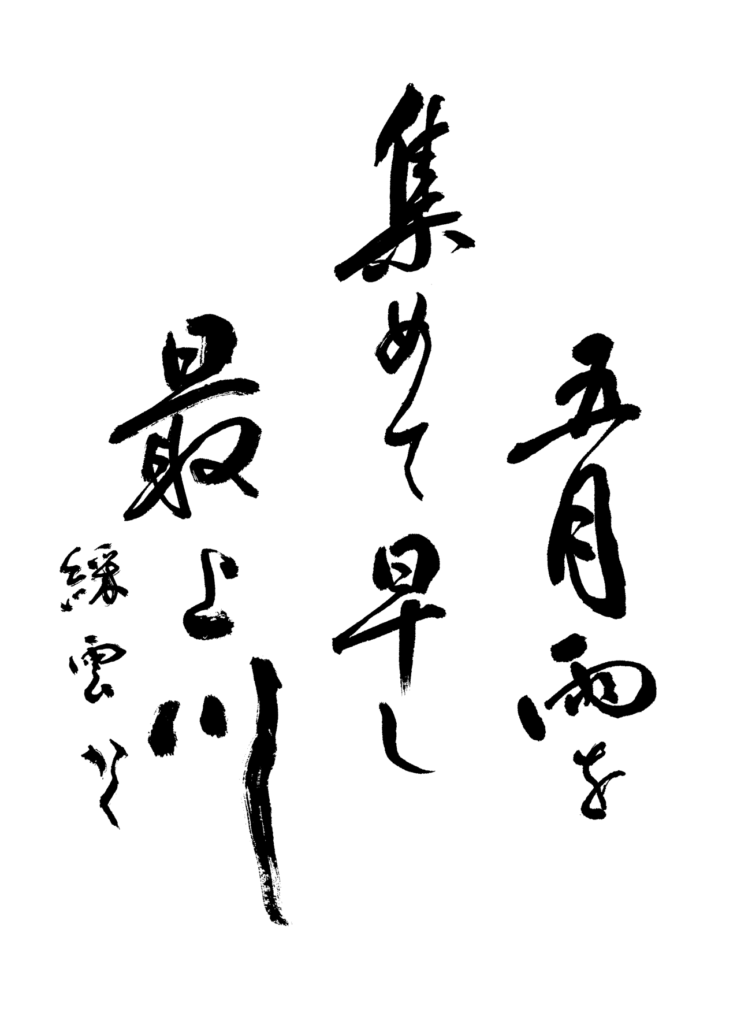 五月雨を
集めて早し
最上川
綵雲かく